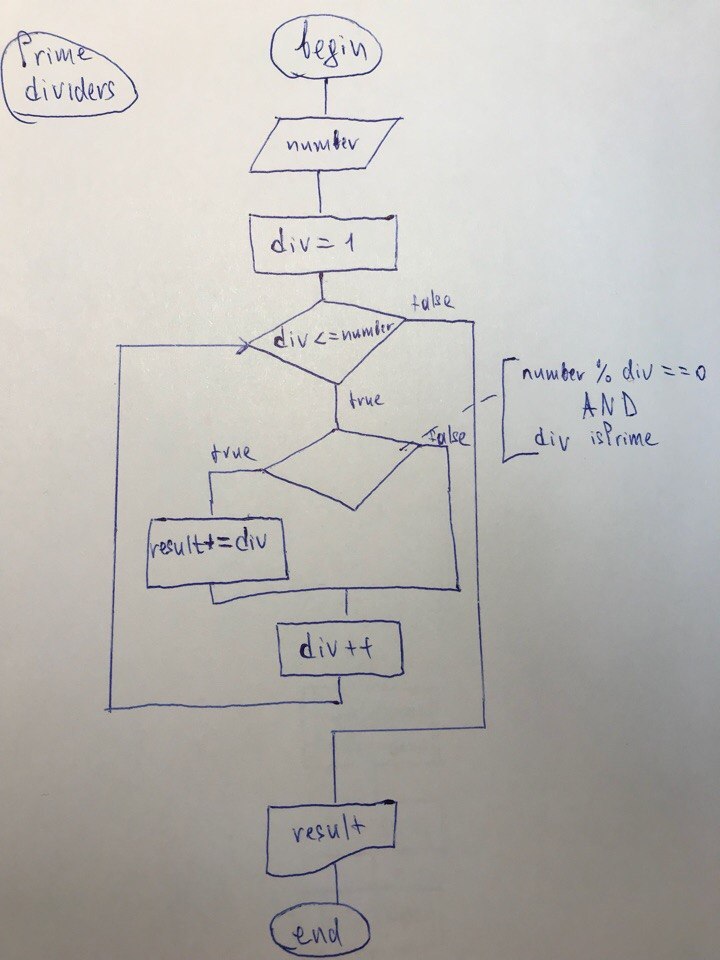 Prime
dividers
begin
number
div = 1
div <= number
false
true
number % div == 0
AND
div isPrime
true
false
result+=div
div++
result
end